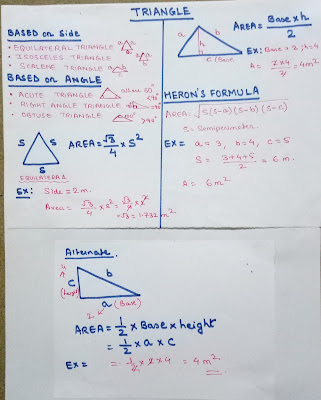 TRIANGLE
BASED on Side
• EQUILATERAL TRIANGLE a a a
• ISOSCELES TRIANGLE a a
• SCALENE TRIANGLE a b c
BASED on ANGLE
• ACUTE TRIANGLE all are 60°
• RIGHT ANGLE TRIANGLE
• OBTUSE TRIANGLE >90°
S S S
EQUILATERAL
AREA = √3/4 × S²
Ex: Side = 2m.
Area = √3/4 × S² = √3/4 × 2²
= √3 = 1.732 m²
a b h
c (Base
AREA = Base × h / 2
Ex: Base = 2, h = 4
A = 2×4/2 = 4m²
HERON'S FORMULA
AREA: √S(S-a)(S-b)(S-c)
S = Semiperimeter.
Ex = a = 3, b = 4, c = 5
S = 3+4+5/2 = 6 m.
A = 6 m²
Alternate.
4
C b
(height)
a (Base)
2
AREA = 1/2 × Base × height
= 1/2 × a × c
Ex = = 1/2 × 2 × 4 = 4m²